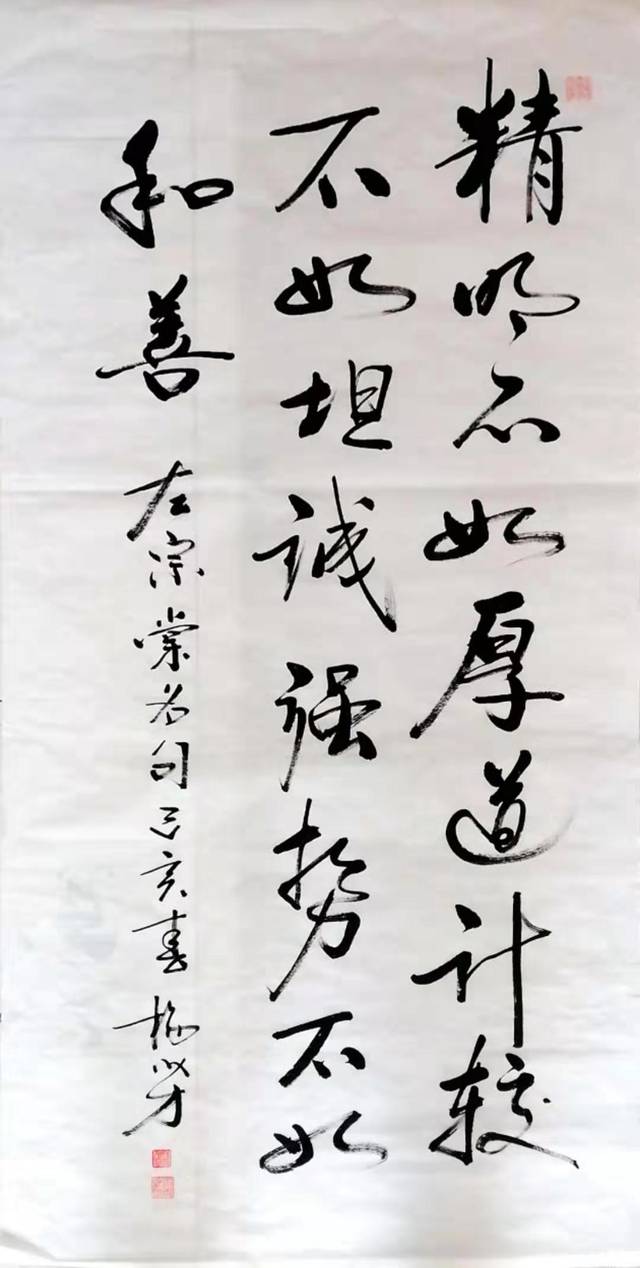 精明不如厚道计较
不如坦诚强势不如
和善 左宗棠名句己亥春